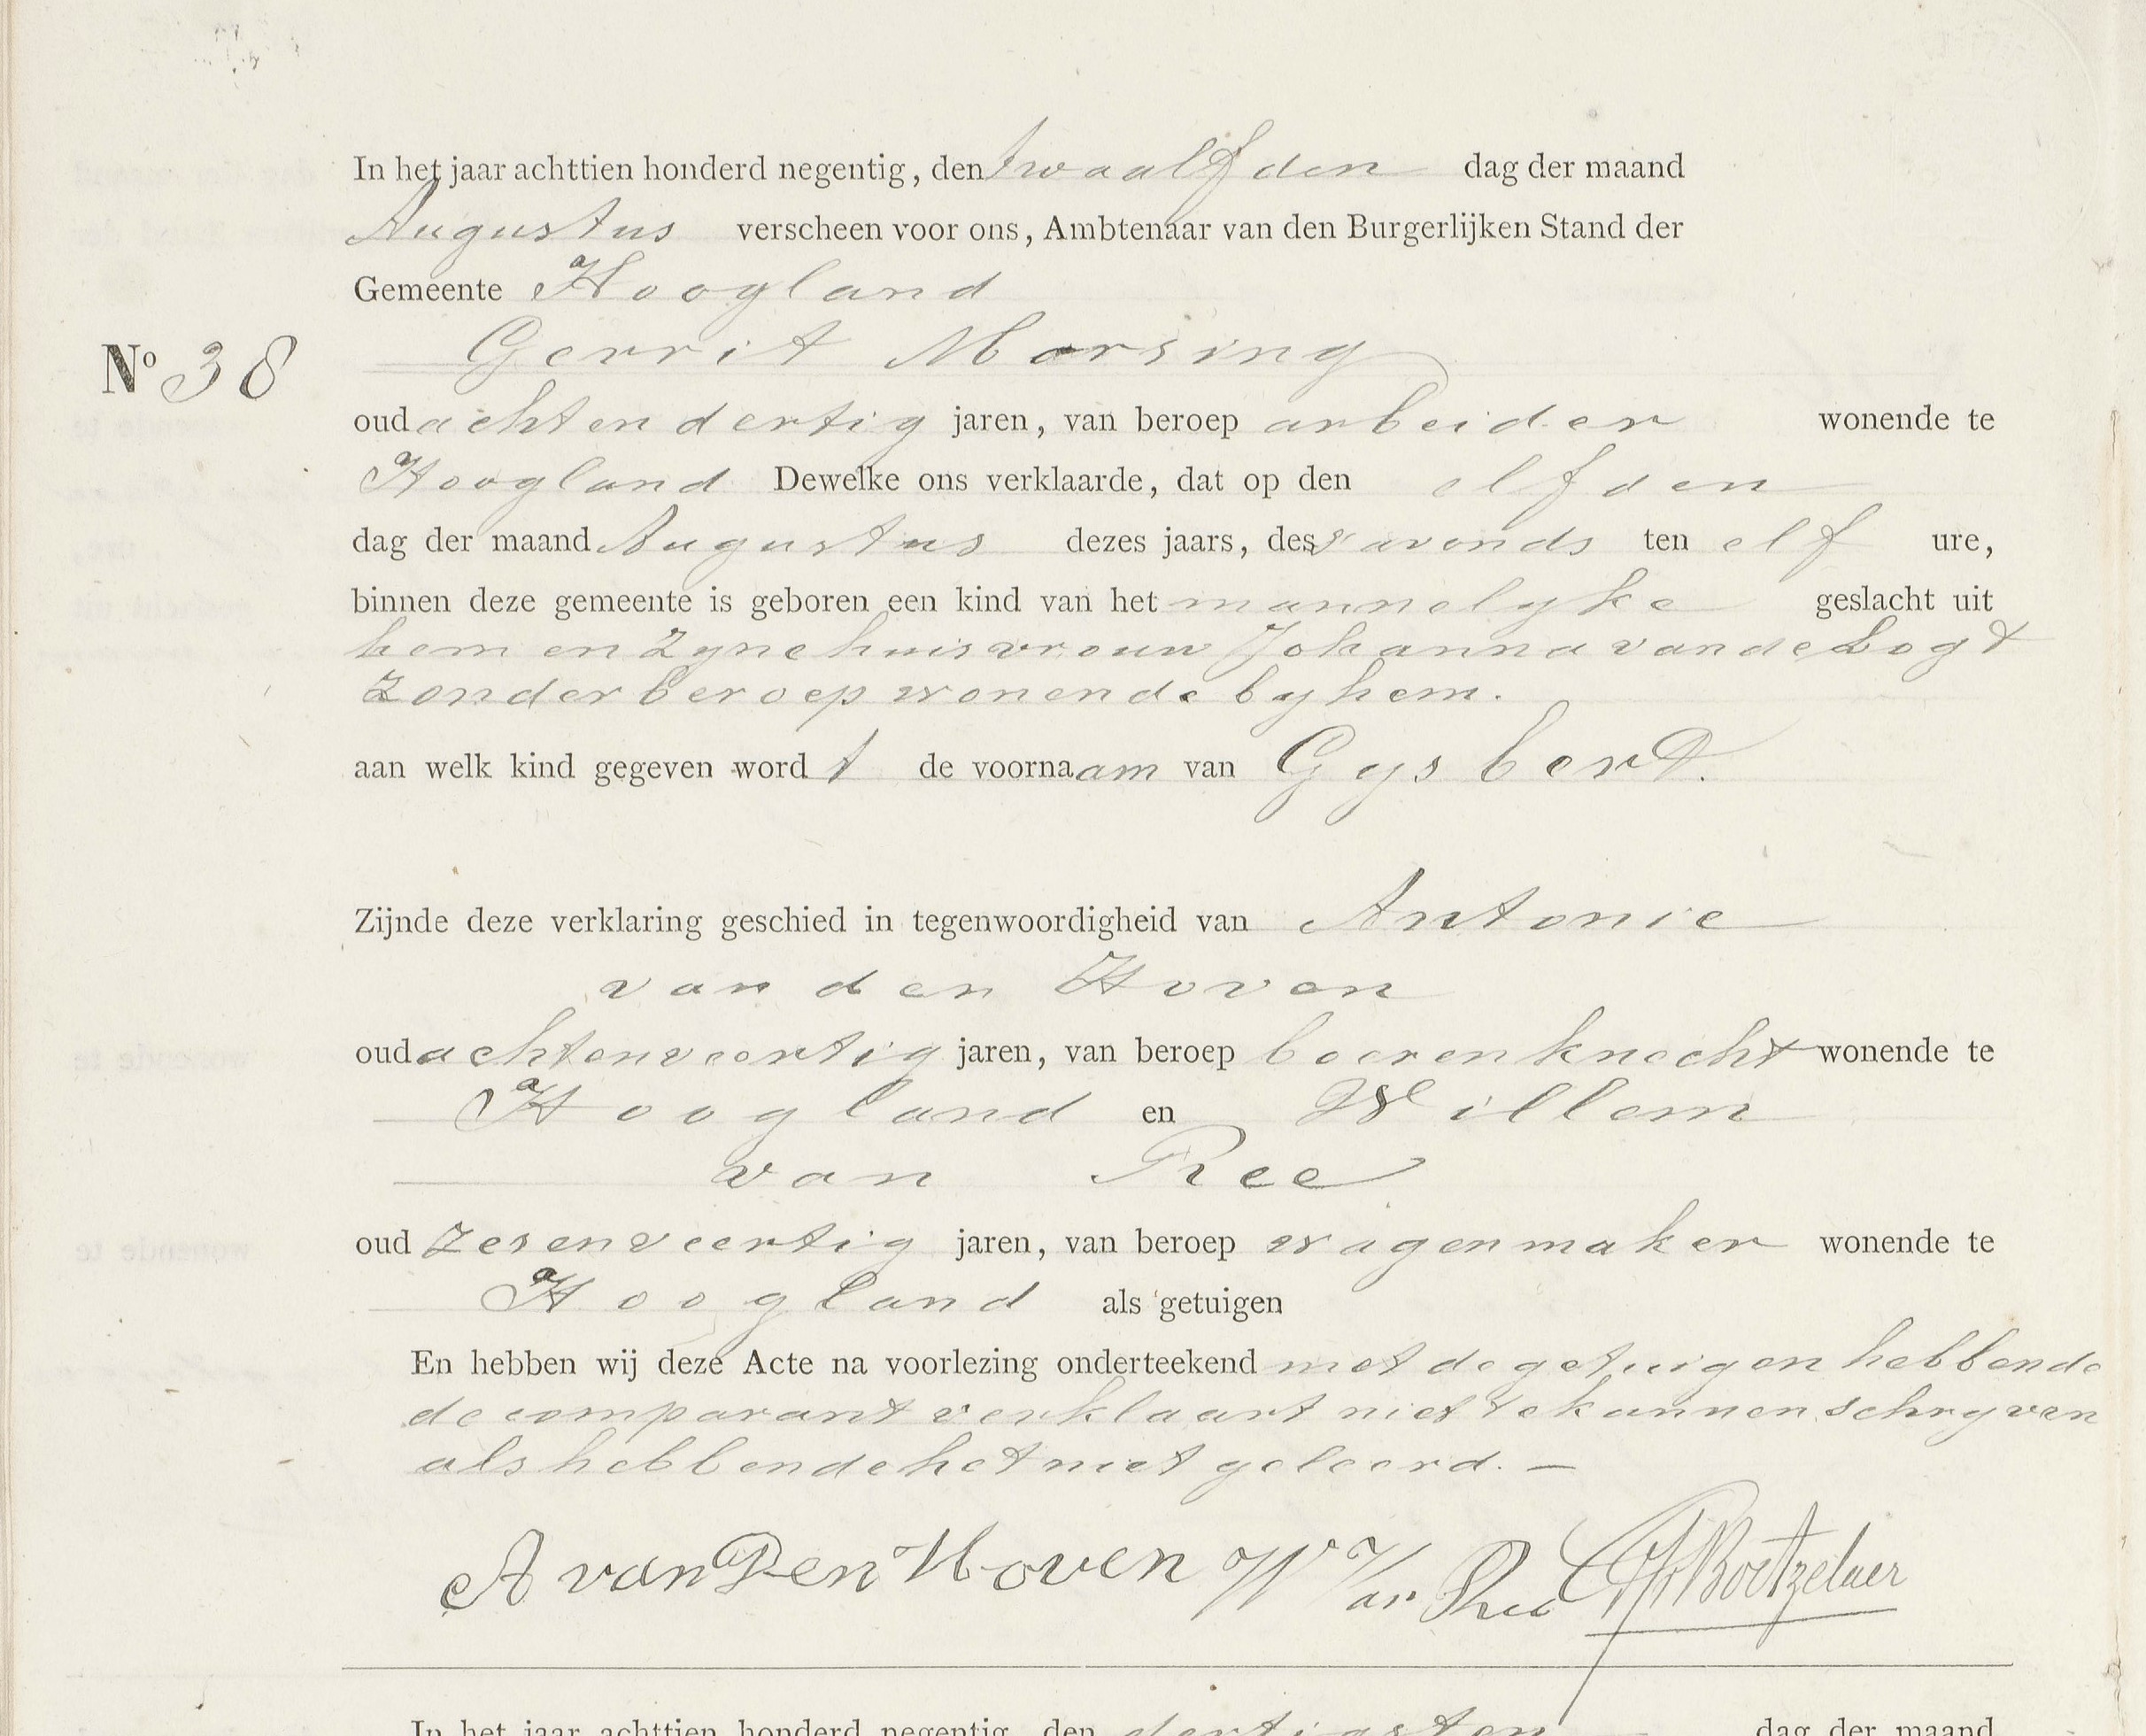 In het jaar achttien honderd negentig, den twaalfden dag der maand
Augustus verscheen voor ons, Ambtenaar van den Burgerlijken Stand der
Gemeente Hoogland
Gerrit Morsing
No 38
oud achtendertig jaren, van beroep arbeider wonende te
Hoogland Dewelke ons verklaarde, dat op den elfden
dag der maand Augustus dezes jaars, des s'avonds ten elf ure,
binnen deze gemeente is geboren een kind van het mannelyke geslacht uit
hem en zyne huisvrouw Johanna van de Bogt
zonder beroep wonende by hem.
aan welk kind gegeven wordt de voornaam van Gysbert.
Zijnde deze verklaring geschied in tegenwoordigheid van Antonie
van den Hoven
oud achtenveertig jaren, van beroep boerenknecht wonende te
Hoogland en Willem
van Ree
oud zesenveertig jaren, van beroep wagenmaker wonende te
Hoogland als getuigen
En hebben wij deze Acte na voorlezing onderteekend met de getuigen hebbende
de comparant verklaart niet te kunnen schryven
als hebbende het niet geleerd. —
A van Den Hoven W Van Ree Boetzelaer
In het jaar achttien honderd negentig, den dertigsten dag der maand